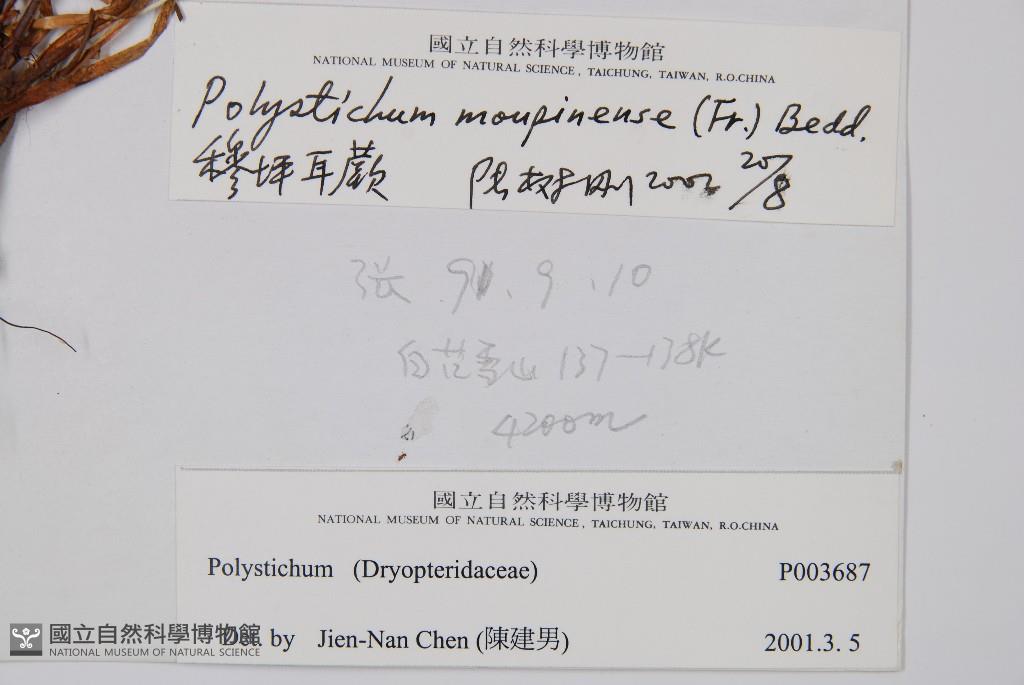 國立自然科學博物館
NATIONAL MUSEUM OF NATURAL SCIENCE, TAICHUNG, TAIWAN, R.O.CHINA
Polystichum moupinense (Fr.) Bedd.
穆坪耳蕨 2002 20/8
张 91.9.10
白芒雪山 137-138K
4200m
國立自然科學博物館
NATIONAL MUSEUM OF NATURAL SCIENCE, TAICHUNG, TAIWAN, R.O.CHINA
Polystichum (Dryopteridaceae) P003687
Det. by Jien-Nan Chen (陳建男) 2001.3.5
國立自然科學博物館
NATIONAL MUSEUM OF NATURAL SCIENCE